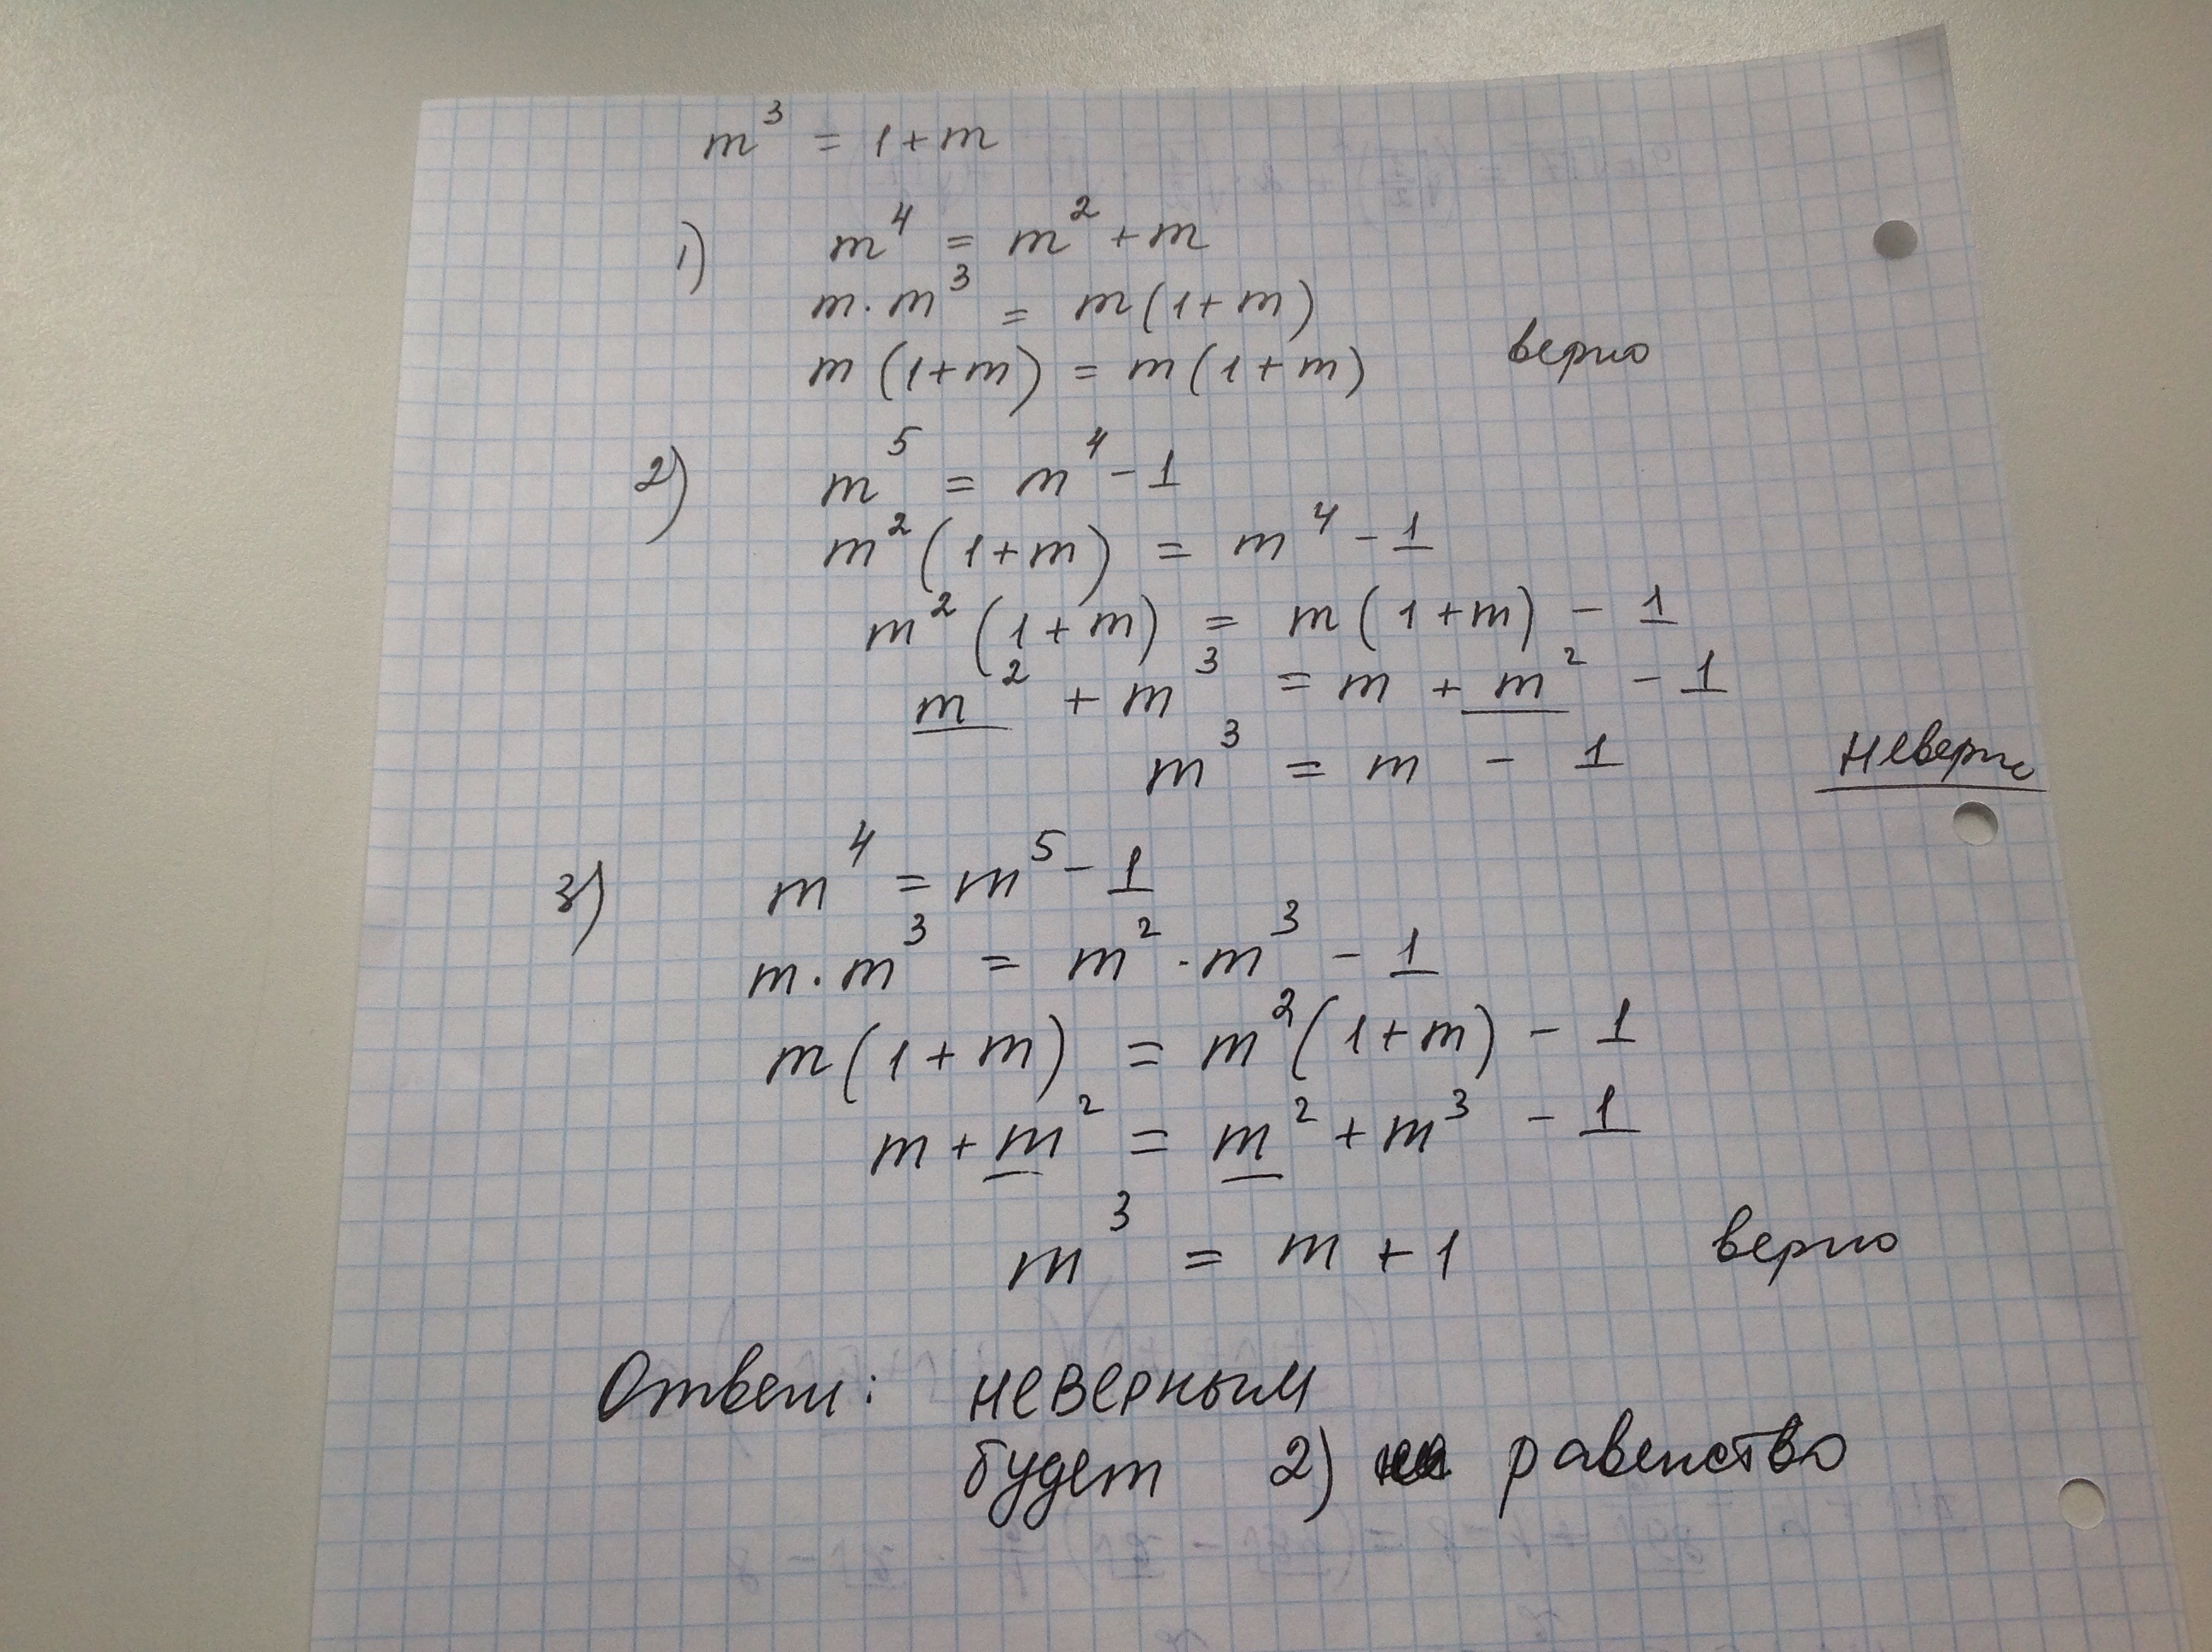 m³ = 1+m
1) m⁴ = m² + m
m · m³ = m(1+m)
m(1+m) = m(1+m) верно
2) m⁵ = m⁴ - 1
m²(1+m) = m⁴ - 1
m²(1+m) = m(1+m) - 1
m² + m³ = m + m² - 1
m³ = m - 1 неверно
3) m⁴ = m⁵ - 1
m · m³ = m² · m³ - 1
m(1+m) = m²(1+m) - 1
m + m² = m² + m³ - 1
m³ = m + 1 верно
Ответ: неверным
будет 2) равенство